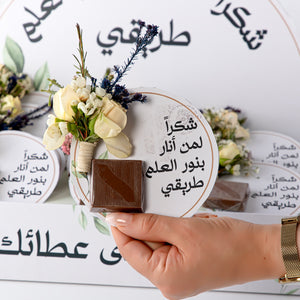 شكراً
علم
طريقي
شكراً
لمن أنار
بنور العلم
طريقي
شكراً
لمن أنار
بنور العلم
طريقي
شكراً
لمن أنار
بنور العلم
طريقي
عطائك